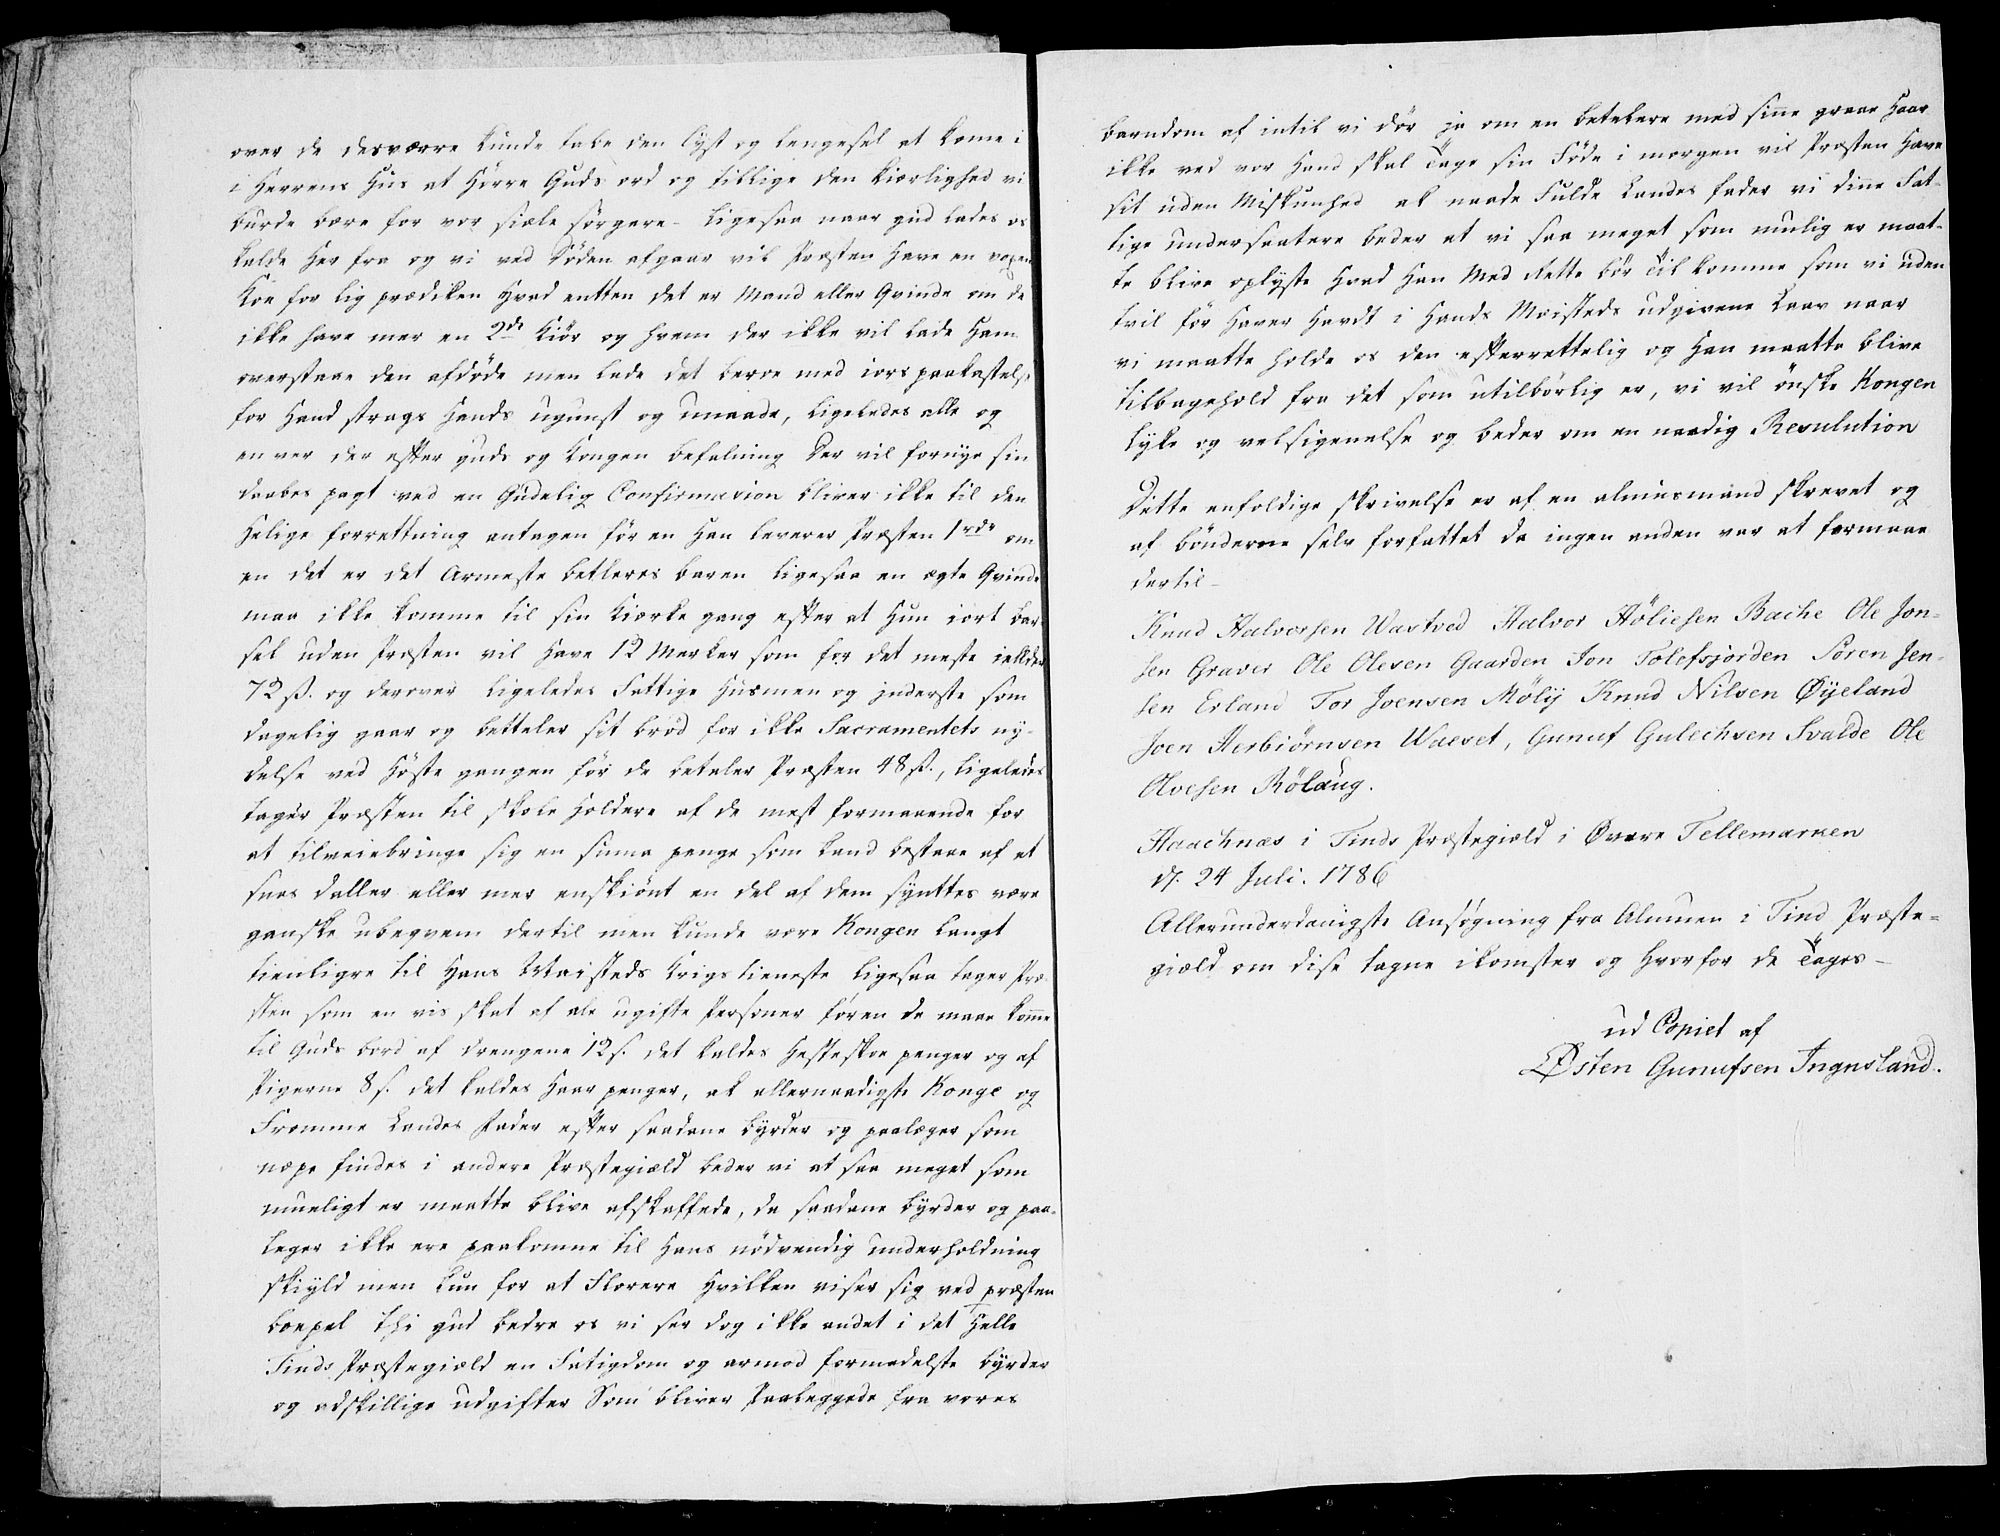 over de desværre kunde tabe den lyst og lengesel at kome i
i Herrens Hus at Hörre Guds ord og tillige den kiærlighed vi
burde bære for vor siæle sörgere - ligesaa naar gud lades os
kalde Her fra og vi ved Döden afgaar vil Præsten Have en voxen
Koe for lig prædiken Hvad entten det er Mand eller Qvinde om de
ikke have mer en 2de Kiör og hvem der ikke vil lade Ham
overstaae den afdöde men lade det beroe med iors paakastelse
for Hand strags Hands ugunst og unaade, ligeledes alle og
en ver der efter guds og Kongen befalning der vil fornye sin
daabes pagt ved en Gudelig Confirmasion bliver ikke til den
Helige forrettning antagen för en Han leverer Præsten 1 rdr om
en det er det Armeste betleres baren ligesaa en ægte Qvinde
maa ikke komme til sin Kiærke gang efter at Hun iort bar
sel uden Præsten vil Have 12 Merker som for det meste ielder
72 ß. og derover ligeledes Fattige Husmen og inderste som
dagelig gaar og betteler sit bröd for ikke Sacramentets ny-
delse ved Höste gangen för de betaler Præsten 48 ß., ligeledes
tager Præsten til skole Holdere af de mest formaaende for
at tilveiebringe sig en suma penge som kand bestaae af et
snes daller eller mer enskiönt en del af dem synttes være
ganske ubeqvem dertil men kunde være Kongen langt
tienligre til Hans Maisteds Krigs tieneste ligesaa tager Præ-
sten som en vis skat af ale ugifte Personer för en de maae kome
til Guds bord af drengene 12 s. det kaldes Hesteskoe penger og af
Pigerne 8 s. det kaldes Haar penger, ak allernaadigste Konge og
Fromme Landes Fader efter saadane byrder og paalæger som
næpe findes i andere Præstegiæld beder vi at saa meget som
mueligt er maatte blive afskaffede, da saadane byrder og paa-
leger ikke ere paakomne til Hans nödvendig underholdning
skiyld men kun for at Florere Hvilken viser sig ved præsten
boepel thi gud bedre os vi ser dog ikke andet i det Helle
Tinds Præstegiæld en Fatigdom og armod formedelste byrder
og adskillige udgifter Som bliver Paaleggede fra vores
barndom af intil vi dör ja om en betelere med sinne graae Haar
ikke ved vor Hand skal Tage sin Föde i morgen vil Præsten Have
sit uden Miskunhed ak naade Fulde Landes fader vi dine Fat-
tige undersaatere beder at vi saa meget som mulig er maat-
te blive oplyste Hvad Han Med Rette bör Til komme som vi uden
tvil för Haver Havdt i Hands Maisteds udgivene Laav naar
vi maatte Holde os den efterrettelig og Han maatte blive
tilbagehold fra det som utilbörlig er, vi vil önske Kongen
lyke og velsigenelse og beder om en naadig Resulution
Dette enfoldige skrivelse er af en almuesmand skrevet og
af bönderne selv forfattet da ingen anden var at formaae
dertil -
Knud Halvorsen Wastved Halvor Höliesen Bache Ole Jon-
sen Graver Ole Olesen Gaarden Jon Tolefsjorden Sören Jen-
sen Erland Tor Joensen Mölij Knud Nilsen Øÿeland
Joen Herbiörnsen Waeset, Gunuf Gulechsen Svalde Ole
Olvesen Rölaug.
Haachnæs i Tinds Præstegiæld i Øvere Tellemarken
d. 24 Juli. 1786
Allerunderdanigste Ansøgning fra Almuen i Tind Præste-
giæld om dise tagne ikomster og Hvorfor de Tages -
ud Copiet af
Østen Gunufsen Ingusland.